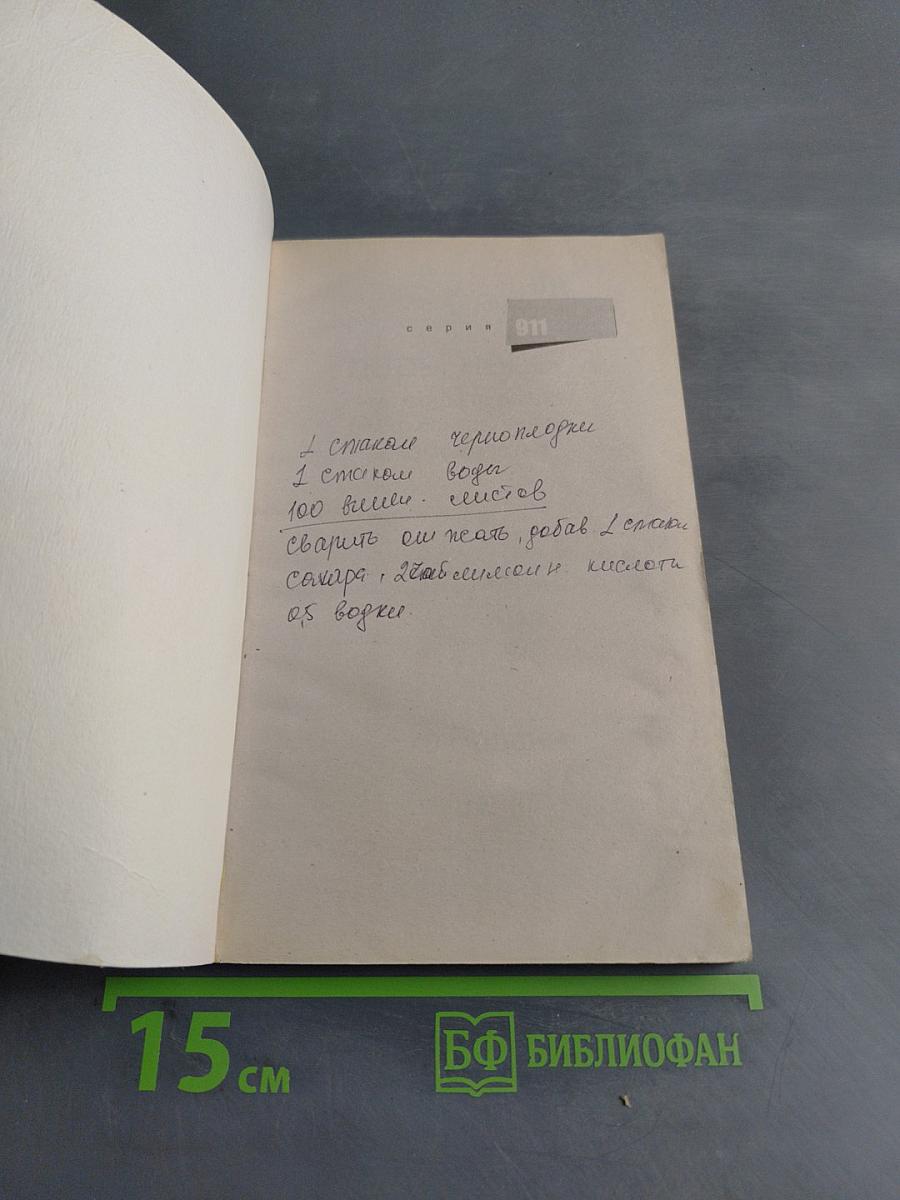 серия 911
1 стакан черноплодки
1 стакан воды
100 вишн. листов
сварить отжать, добав 1 стакан
сахара, 2 чай лимонн кислоти
0,5 водки.
15 см
БФ БИБЛИОФАН